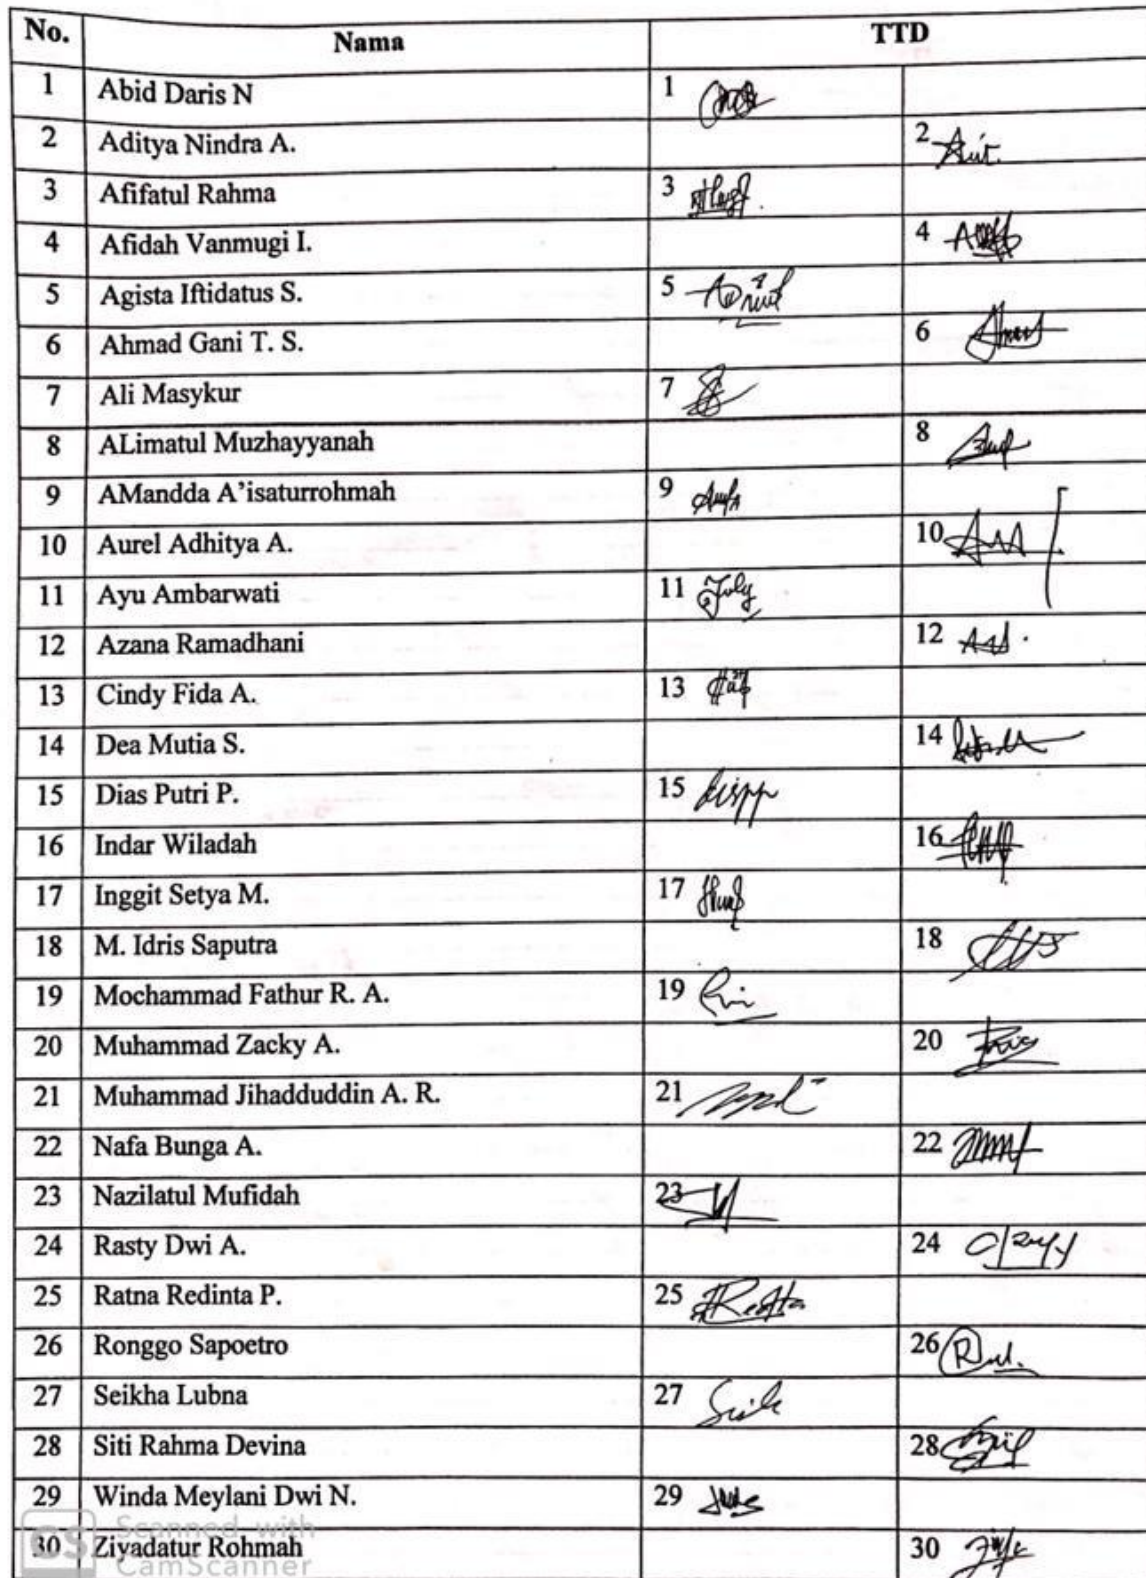 No. Nama TTD
1 Abid Daris N 1
2 Aditya Nindra A. 2
3 Afifatul Rahma 3
4 Afidah Vanmugi I. 4
5 Agista Iftidatus S. 5
6 Ahmad Gani T. S. 6
7 Ali Masykur 7
8 ALimatul Muzhayyanah 8
9 AMandda A'isaturrohmah 9
10 Aurel Adhitya A. 10
11 Ayu Ambarwati 11
12 Azana Ramadhani 12
13 Cindy Fida A. 13
14 Dea Mutia S. 14
15 Dias Putri P. 15
16 Indar Wiladah 16
17 Inggit Setya M. 17
18 M. Idris Saputra 18
19 Mochammad Fathur R. A. 19
20 Muhammad Zacky A. 20
21 Muhammad Jihadduddin A. R. 21
22 Nafa Bunga A. 22
23 Nazilatul Mufidah 23
24 Rasty Dwi A. 24
25 Ratna Redinta P. 25
26 Ronggo Sapoetro 26
27 Seikha Lubna 27
28 Siti Rahma Devina 28
29 Winda Meylani Dwi N. 29
30 Ziyadatur Rohmah 30
CS Scanned with
CamScanner